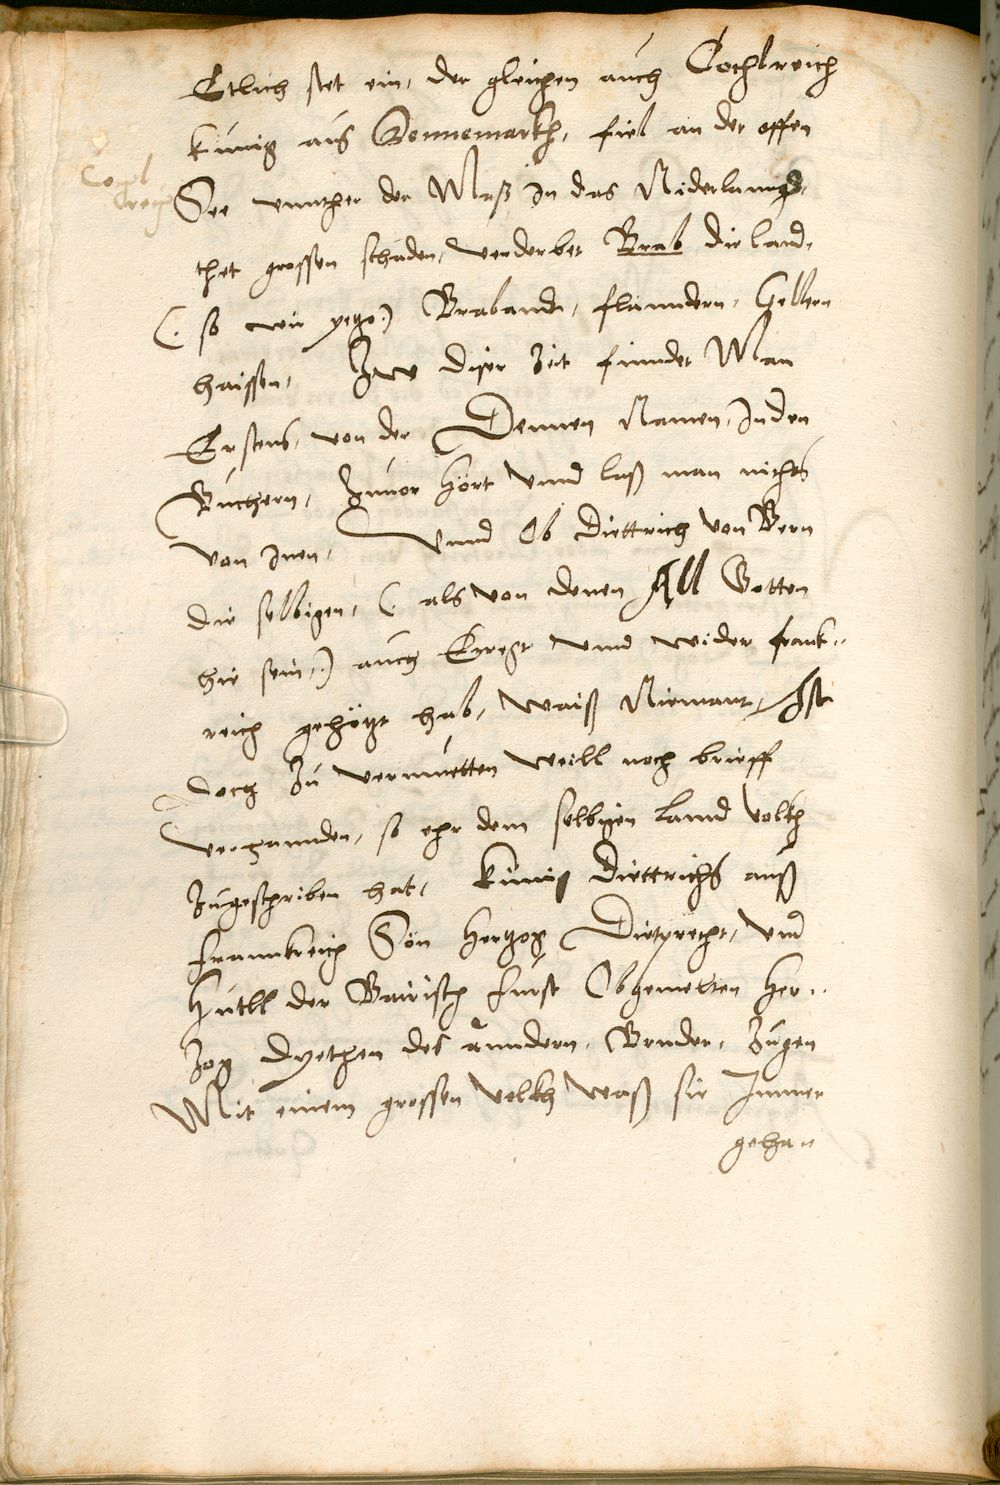 Etlich stet ein, der gleichen auch Cochlreich
künig aus Dennemarkh, fiel an der offen
Cochl
reich
See unnther der Maß in das Niderlannd,
thet grossen schaden, verderbet Brab die land,
(: so wir yetzo :) Brabandt, flanndern, Gellern
haissen, Zw diser Zeit finndet Man
Erstens, von der Dennen Namen, In den
Büechern, Zuuor hört vnnd laß man nichts
von Inen, Vnnd Ob Diettrich von Bern
die selbigen, (: als von denen All Gotten
hie sein, :) auch Erregt vnnd wider frank¨
reich gehötzt hab, waiß Niemant, Ist
doch Zu vermuetten weill noch brieff
verhannden, so ehr dem selbigen Lannd volkh
Zugeschriben hat, künig Diettrichs auß
frannkreich Son Hertzog Dietprecht, vnd
Hüttl der Bairisch fürst Obgemelten Her¨
zog Dyethen des anndern, Bruder, Zugen
Mit einem grossen volkh was sie Immer
gehan